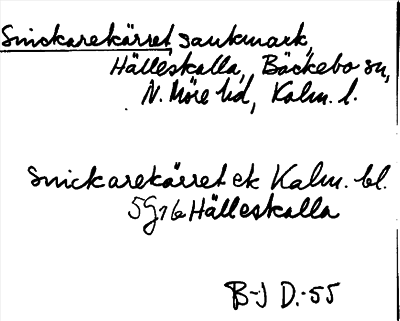 Snickarekärret, sankmark,
Hälleskalla, Bäckebo sn,
N. Möre hd, Kalm. l.
Snickarekärret ek Kalm. bl.
5G 1b Hälleskalla
B-J D.-55